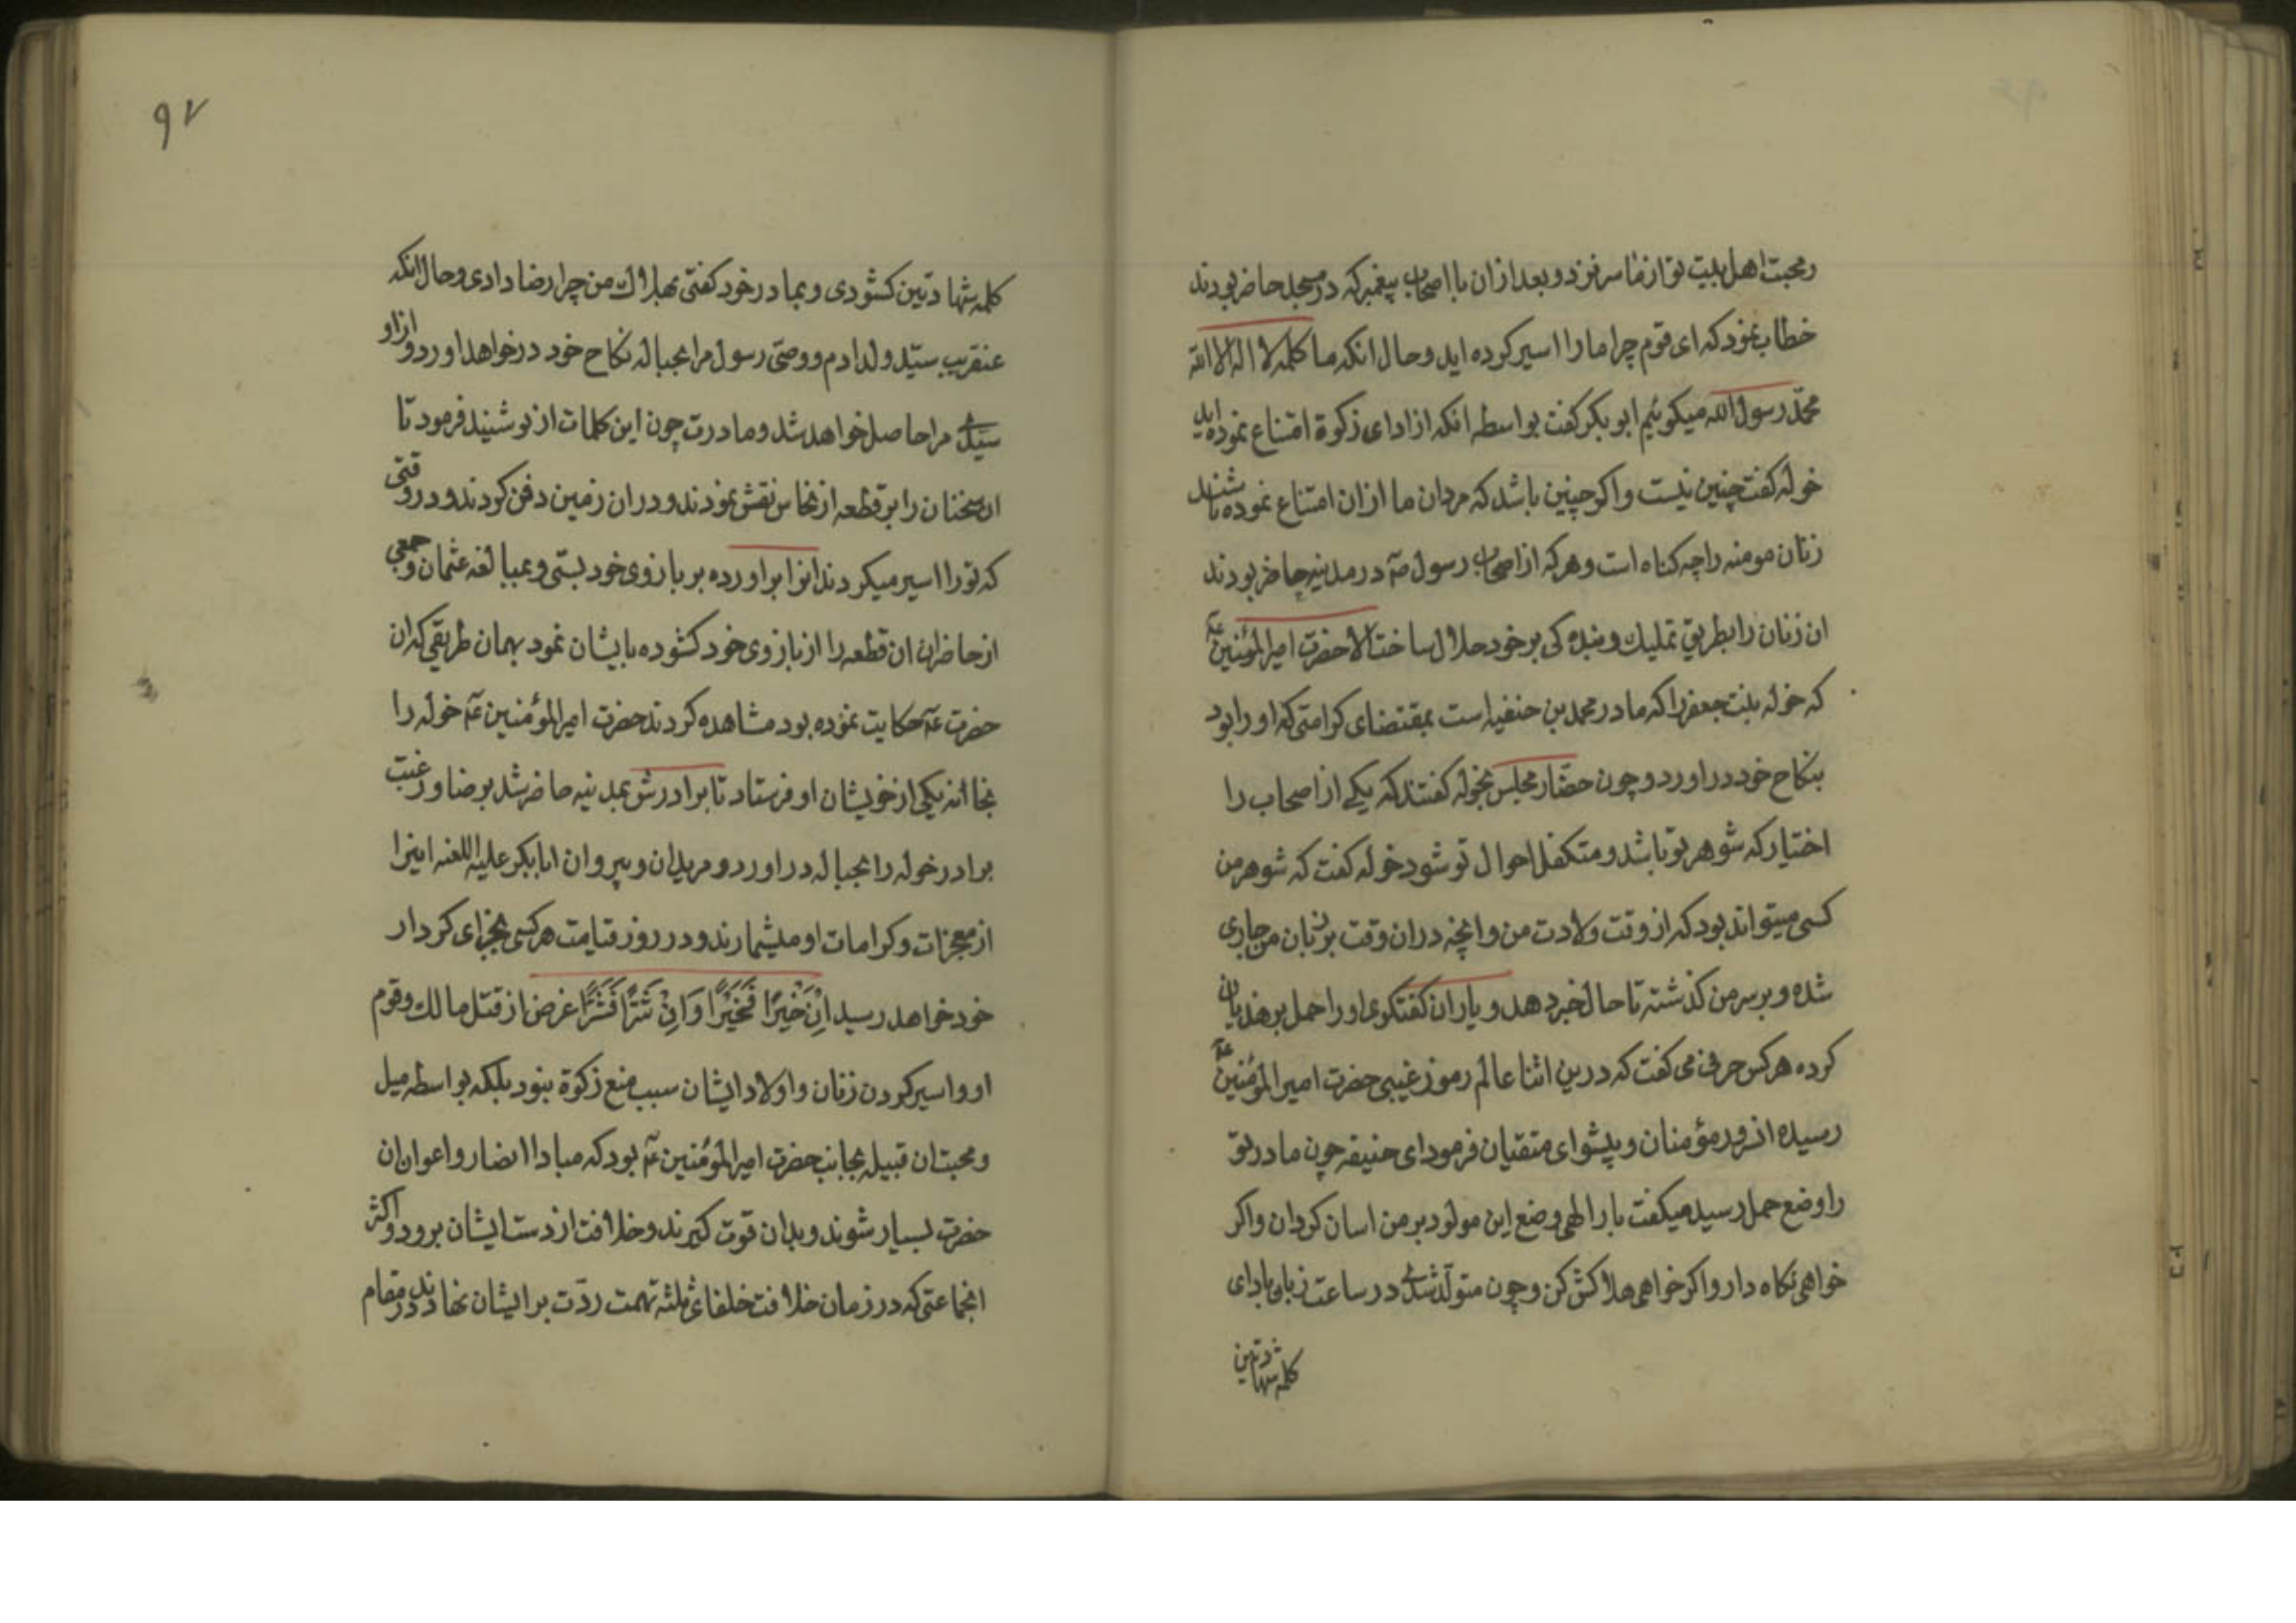 ومحبت اهل بیت تو از ما سر نزد و بعد ازان با اصحاب پیغمبر که در مسجد حاضر بودند
خطاب نمود که ای قوم چرا ما را اسیر کرده اید و حال انکه ما کلمه لا اله الا الله
محمّد رسول الله میکوئیم ابو بکر کفت بواسطه انکه از ادای زکوة امتناع نموده اید
خوله کفت چنین نیست و اکر چنین باشد که مردان ما ازان امتناع نموده باشند
زنان مومنه را چه کناه است و هر که از اصحاب رسول صم در مدینه حاضر بودند
ان زنان را بطریق تملیک و بنده کی بر خود حلال ساخت الا حضرت امیر المؤمنین عم
که خوله بنت جعفر را که مادر محمد بن حنفیه است بمقتضای کرامتی که او را بود
بنکاح خود در اورد و چون حضّار مجلس بخوله کفتند که یکی از اصحاب را
اختیار که شوهر تو باشد و متکفل احوال تو شود خوله کفت که شوهر من
کسی میتواند بود که از وقت ولادت من و انچه دران وقت بر زبان من جاری
شده و بر سر من کذشته تا حال خبر دهد و یاران کفتکوی او را حمل بر هذیان
کرده هر کس حرفی می کفت که درین اثنا عالم رموز غیبی حضرت امیر المؤمنین عم
رسیده ان سرور مؤمنان و پیشوای متقیان فرمود ای حنیفه چون مادر تو
را وضع حمل رسید میکفت بار الهی وضع این مولود بر من اسان کردان و اکر
خواهی نکاه دار و اکر خواهی هلاکش کن و چون متولد شدی در ساعت زبان بادای
کلمه شهادتین
۹۷
کلمه شهادتین کشودی و بمادر خود کفتی بهلاک من چرا رضا دادی و حال انکه
عنقریب سیّد ولد ادم و وصّی رسول مرا بحباله نکاح خود در خواهد اورد و ازاو
سیّدی مرا حاصل خواهد شد و مادرت چون این کلمات از تو شنید فرمود تا
ان سخنان را بر قطعه از نحاس نقش نمودند و دران زمین دفن کردند و در وقتی
که تو را اسیر میکردند انرا بر اورده بر بازوی خود بستی و بمبالغه عثمان و جمعی
از حاضران ان قطعه را از بازوی خود کشوده بایشان نمود بهمان طریقی که ان
حضرت عم حکایت نموده بود مشاهده کردند حضرت امیر المؤمنین عم خوله را
بخانه یکی از خویشان او فرستاد تا برادرش بمدینه حاضر شد برضا و رغبت
برادر خوله را بحباله در اورد و مریدان و پیروان ابابکر علیه اللعنه اینرا
از معجزات و کرامات او میشمارند و در روز قیامت هر کسی بجزای کردار
خود خواهد رسید اِنْ خَیْرًا فَخَیْرًا وَ اِنْ شَرًّا فَشَرًّا غرض از قتل مالک و قوم
او و اسیر کردن زنان و اولاد ایشان سبب منع زکوة نبود بلکه بواسطه میل
و محبت ان قبیله بجانب حضرت امیر المؤمنین عم بود که مبادا انصار و اعوان ان
حضرت بسیار شوند و بدان قوت کیرند و خلافت از دست ایشان برود و اکثر
انجماعتی که در زمان خلافت خلفای ثلثه تهمت ردّت بر ایشان نهادند در مقام